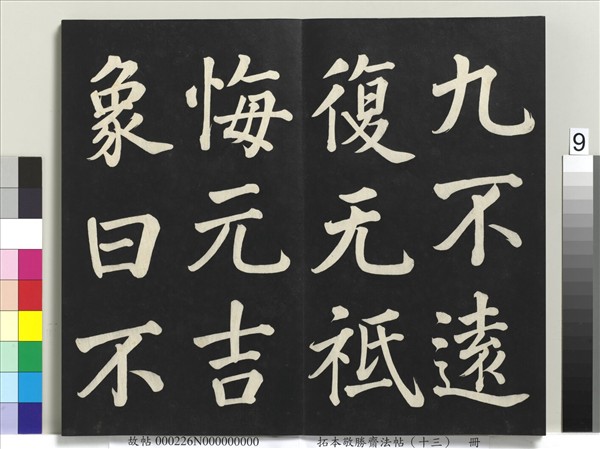 九不遠
復无祇
悔元吉
象曰不
9
故帖 000226N000000000 拓本敬勝齋法帖（十三） 冊